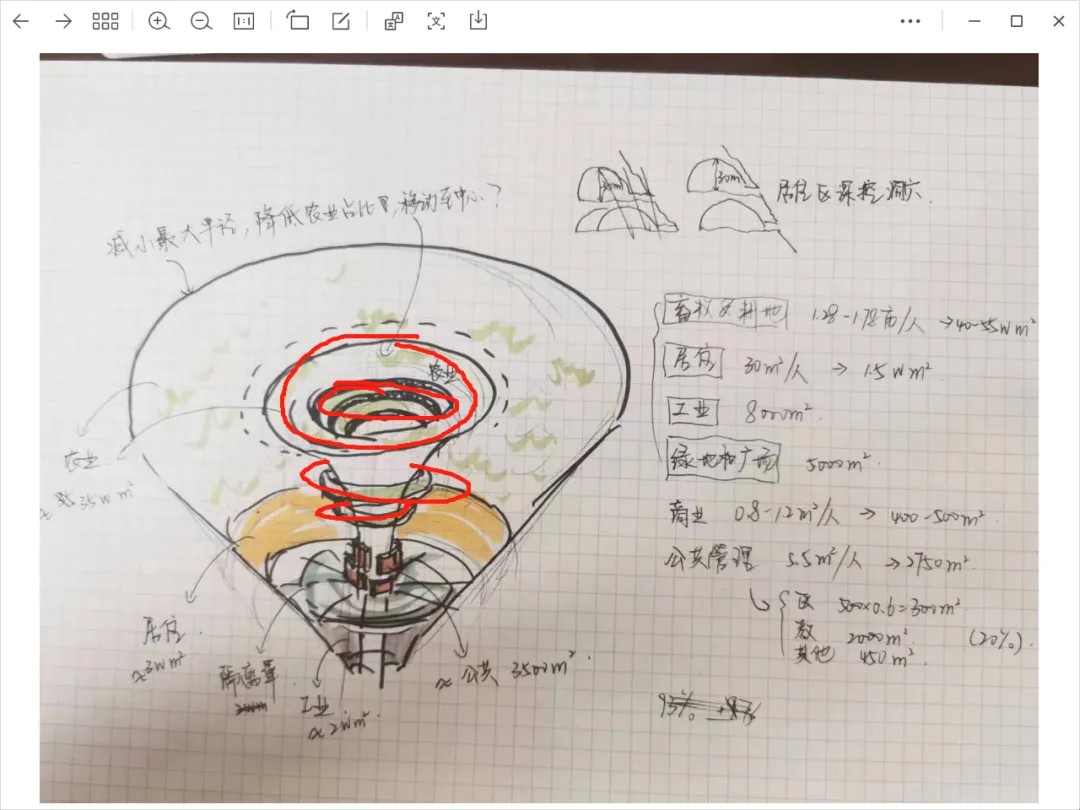 减小最大半径，降低农业占比里，移动至中心？
30m
30m
居住区深挖洞穴
农业
畜牧及耕地 1.28-1.78亩/人 →40-55W m²
居住 30m²/人 → 1.5W m²
工业 8000m²
绿地和广场 5000m²
商业 0.8-1.2m²/人 → 400-500m²
公共管理 5.5m²/人 →2750m²
500×0.6=300m²
2000m² (20%)
其他 450m²
农业
35W m²
居住
≈3W m²
隔离罩
工业
≈2W m²
≈公共 3500m²